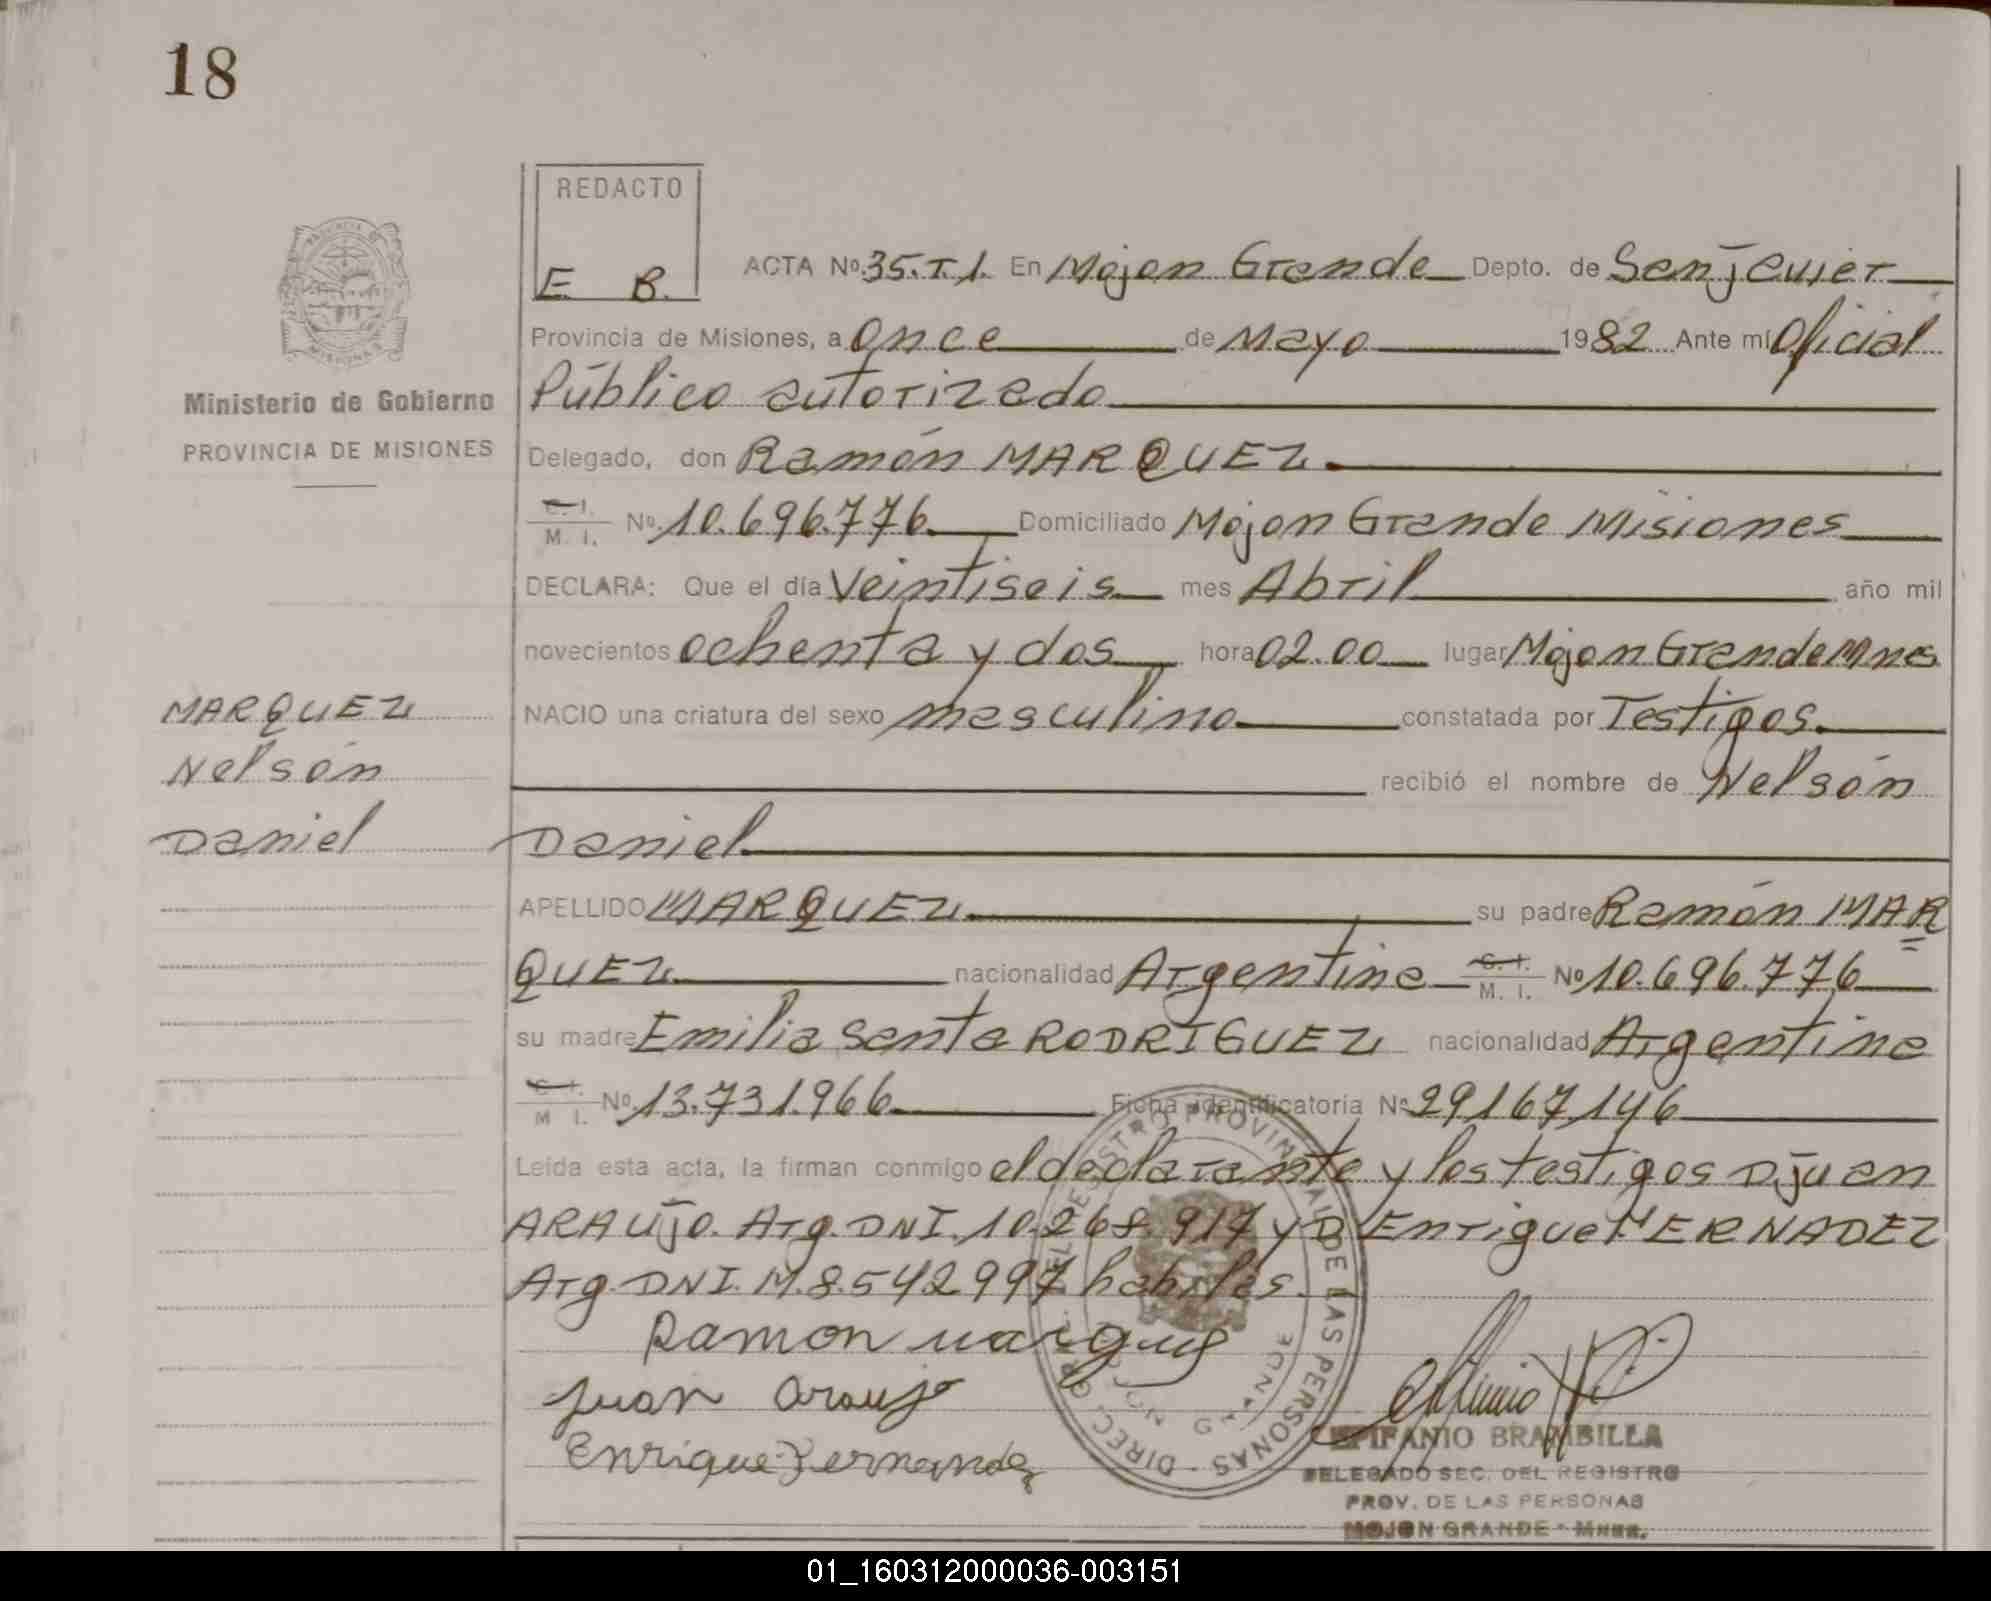 18
REDACTO
E. B.
ACTA Nº 35.T.1. En Mojon Grande Depto. de San Javier
Provincia de Misiones, a Once de Mayo 1982 Ante mi Oficial
Público autorizado
Ministerio de Gobierno
PROVINCIA DE MISIONES
Delegado, don Ramón MARQUEZ.
C. I. M. I. Nº 10.696.776 Domiciliado Mojon Grande Misiones
DECLARA: Que el día Veintiseis mes Abril año mil
novecientos ochenta y dos hora 02.00 lugar Mojon Grande Mnes
MARQUEZ
Nelsón
Daniel
NACIO una criatura del sexo masculino constatada por Testigos.
recibió el nombre de Nelsón
Daniel
APELLIDO MARQUEZ su padre Ramón MAR
QUEZ nacionalidad Argentina C. I. M. I. Nº 10.696.776
su madre Emilia Santa RODRIGUEZ nacionalidad Argentina
C. I. M. I. Nº 13.731.966 Ficha identificatoria Nº 29167146
Leída esta acta, la firman conmigo el declarante y los testigos D Juan
ARAUJO. Arg. DNI. 10.268.917 y D Enrique HERNADEZ
Arg. DNI. M.8.542997 habiles.
Ramon
Juan Araujo
Enrique
DIREC. GRAL. DEL REGISTRO PROVINCIAL DE LAS PERSONAS
MOJON GRANDE
EPIFANIO BRAMBILLA
DELEGADO SEC. DEL REGISTRO
PROV. DE LAS PERSONAS
MOJON GRANDE - Mnes.
01_160312000036-003151